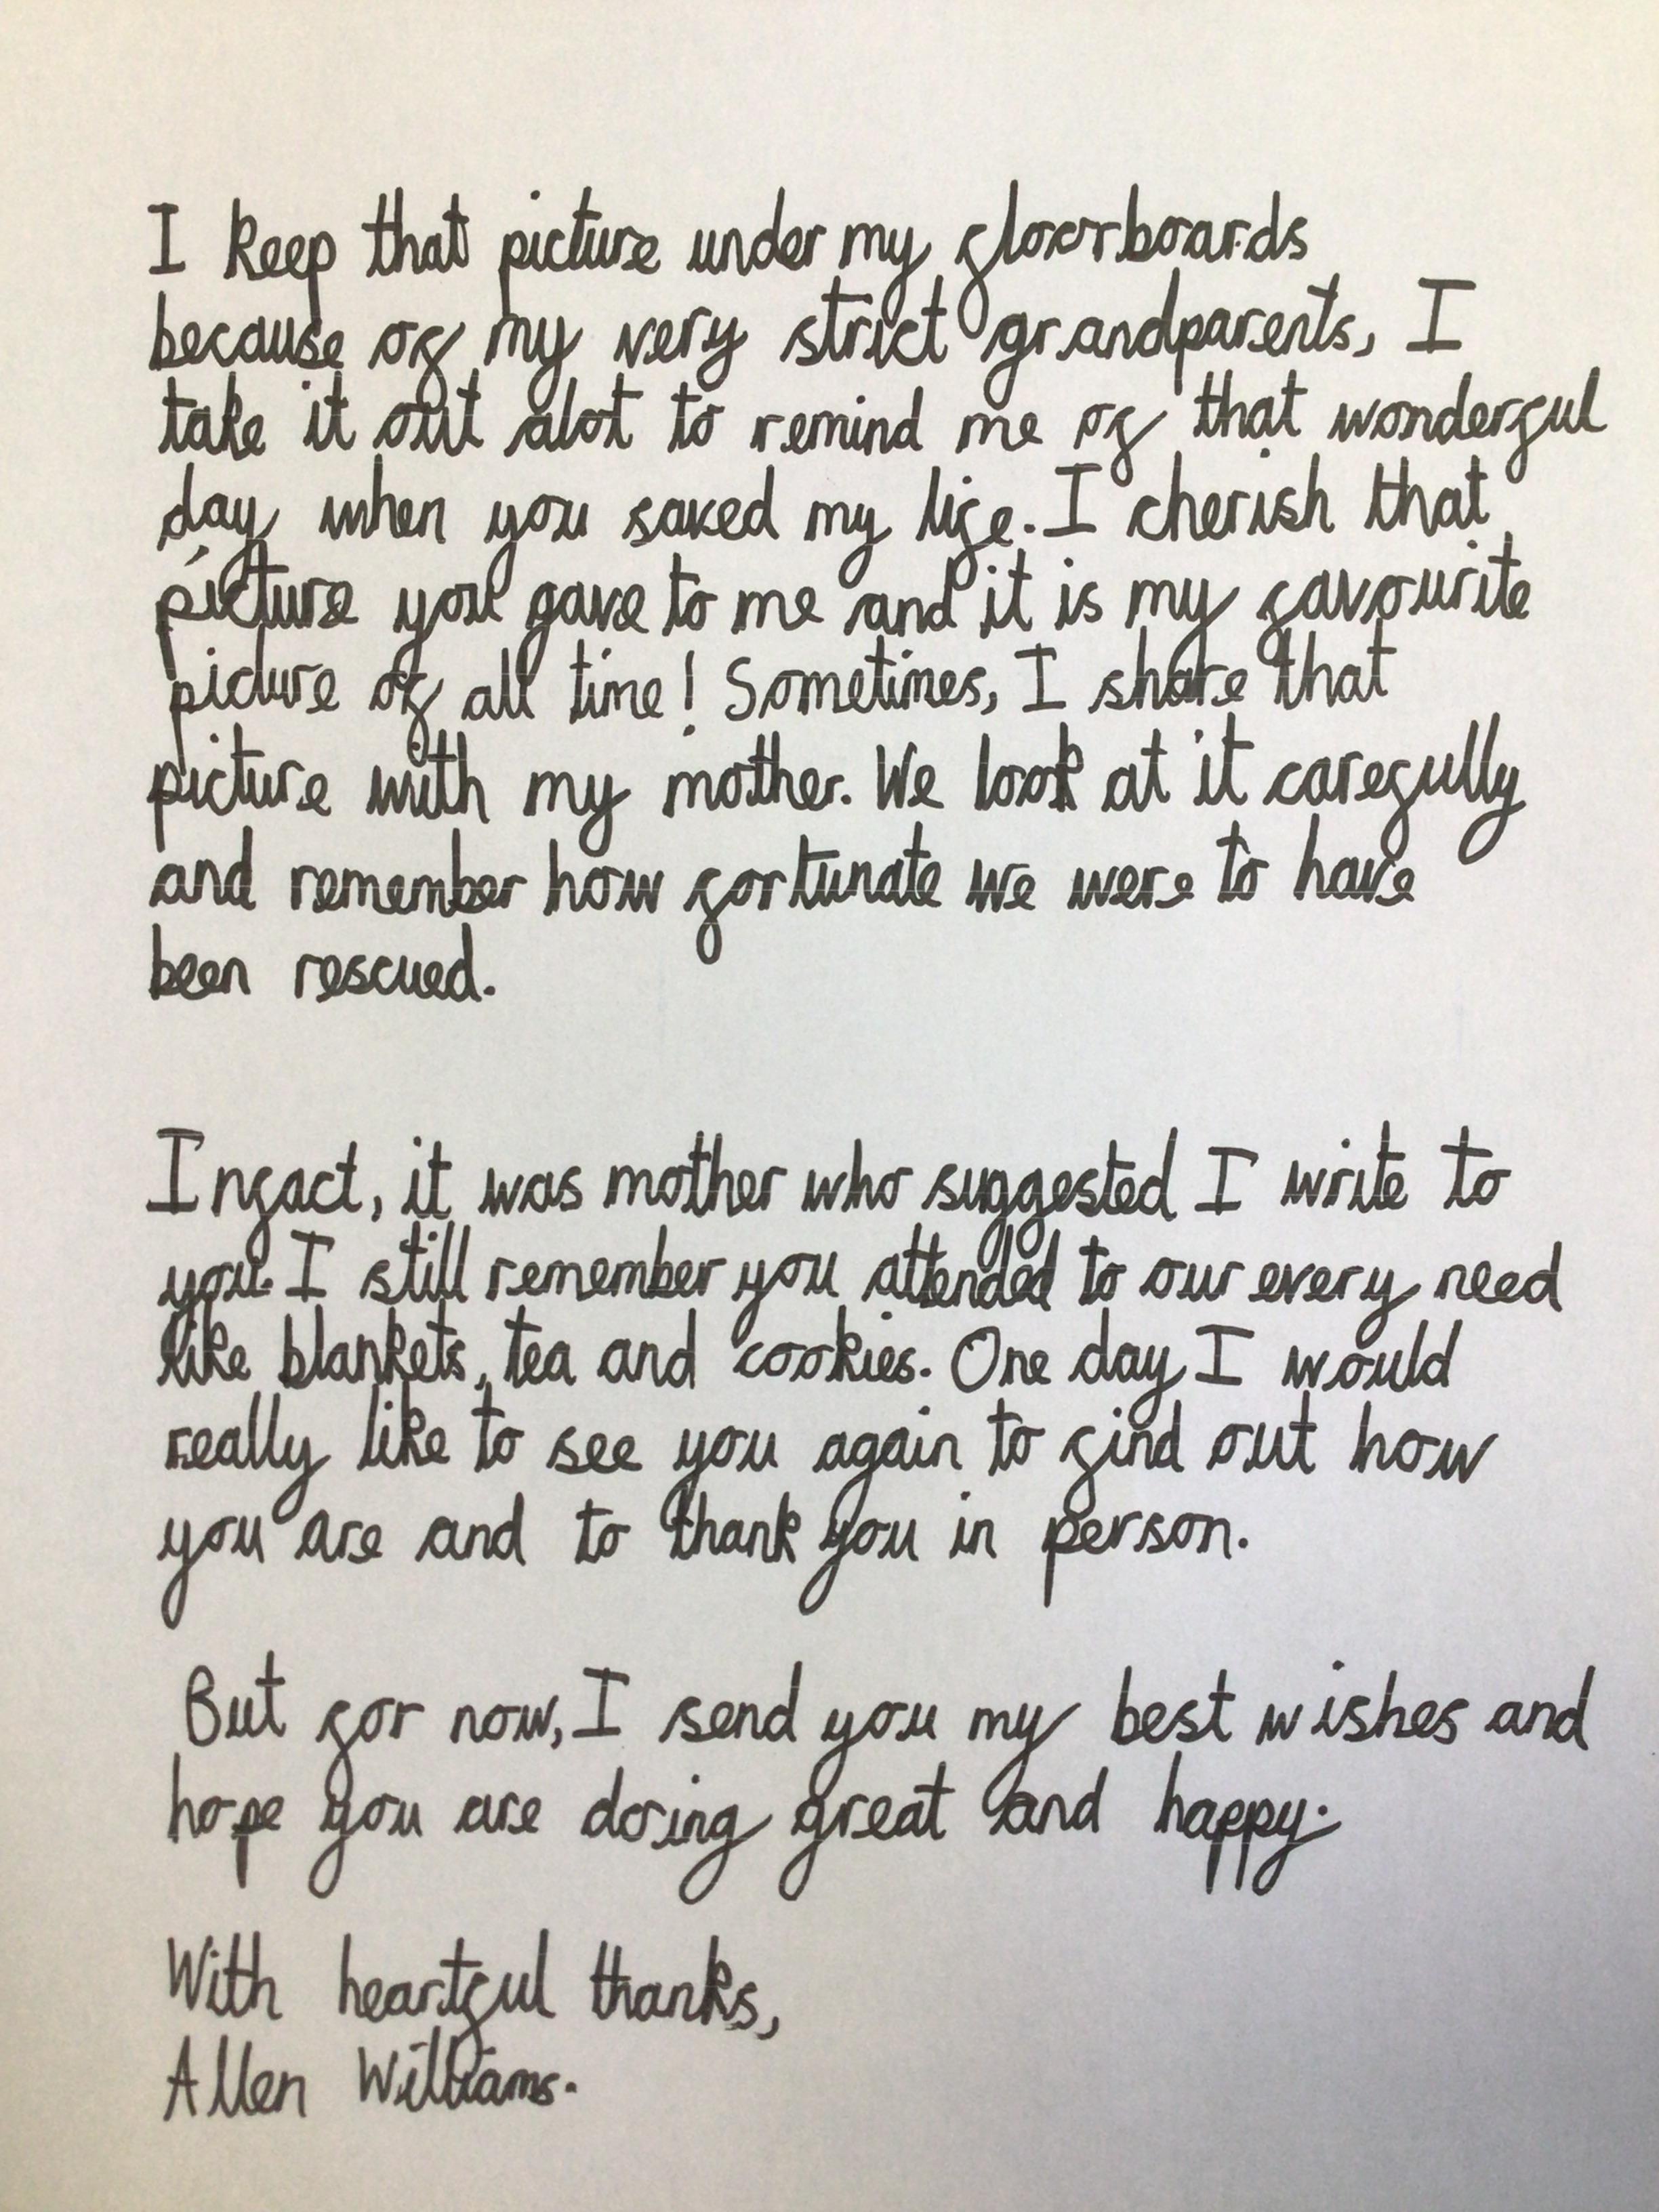 I keep that picture under my floorboards
because of my very strict grandparents, I
take it out alot to remind me of that wonderful
day when you saved my life. I cherish that
picture you gave to me and it is my favourite
picture of all time! Sometimes, I share that
picture with my mother. We look at it carefully
and remember how fortunate we were to have
been rescued.
Infact, it was mother who suggested I write to
you. I still remember you attended to our every need
like blankets, tea and cookies. One day I would
really like to see you again to find out how
you are and to thank you in person.
But for now, I send you my best wishes and
hope you are doing great and happy.
With heartful thanks,
Allen Williams.